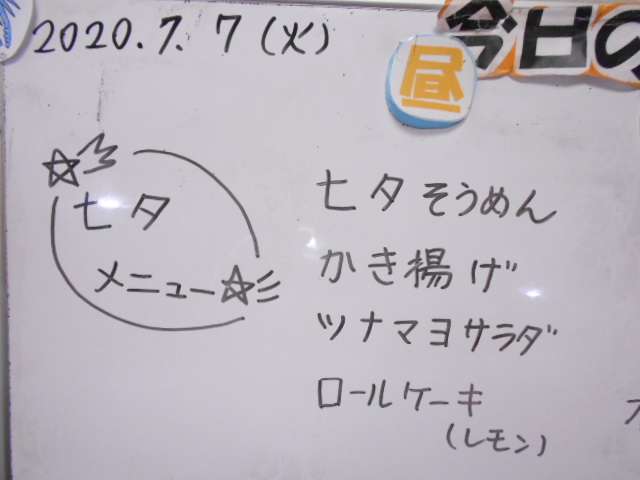 2020.7.7(火)
今日の
昼
七夕
メニュー
七夕そうめん
かき揚げ
ツナマヨサラダ
ロールケーキ
(レモン)